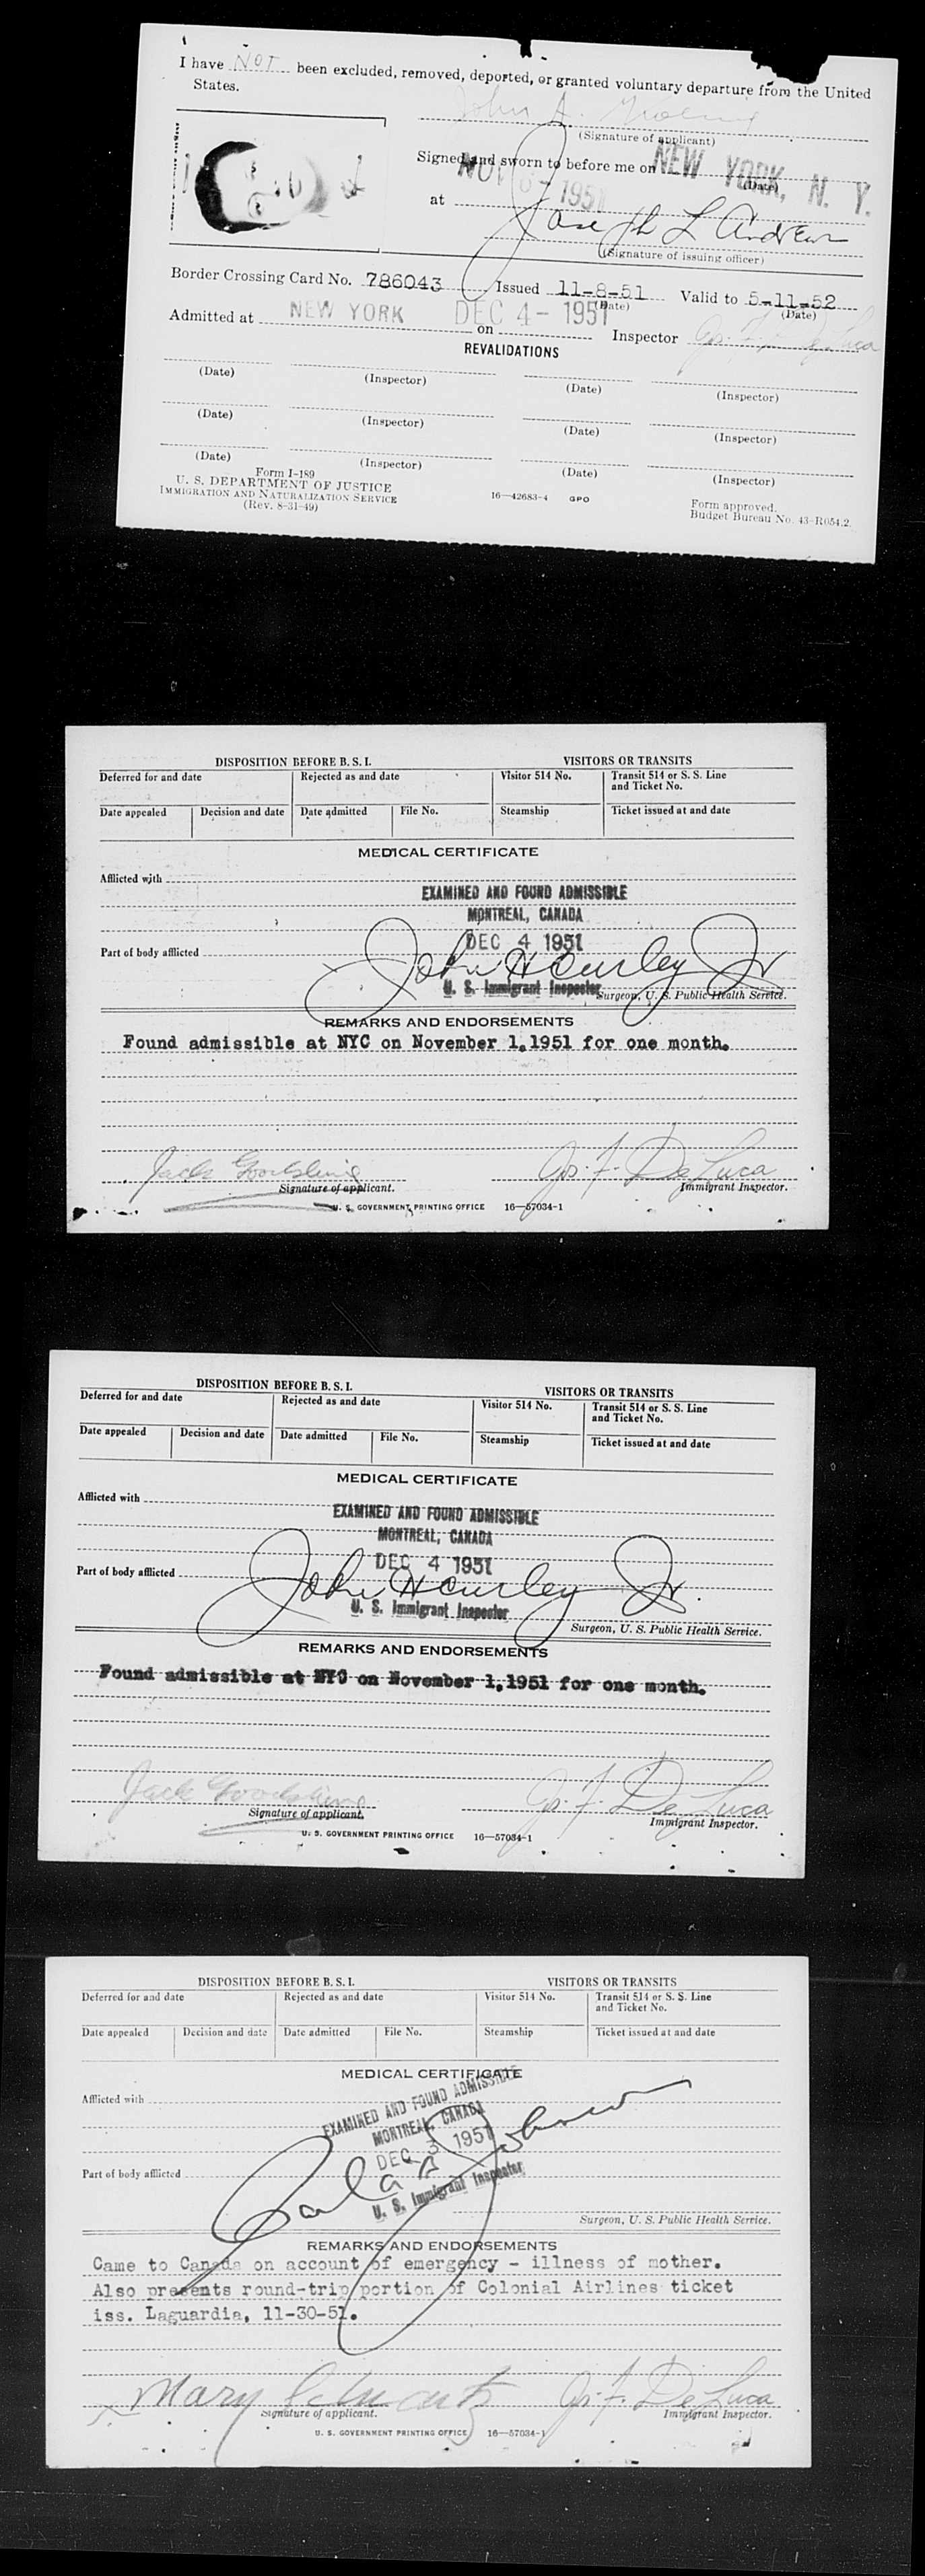 I have NOT been excluded, removed, deported, or granted voluntary departure from the United
States.
John A.
(Signature of applicant)
Signed and sworn to before me on NEW YORK, N. Y.
(Date)
NOV 8 - 1951
at
Joseph L Andrews
(Signature of issuing officer)
Border Crossing Card No. 786043 Issued 11-8-51 Valid to 5-11-52
(Date) (Date)
Admitted at NEW YORK on DEC 4 - 1951 Inspector Jos. F. De Luca
REVALIDATIONS
(Date) (Inspector) (Date) (Inspector)
(Date) (Inspector) (Date) (Inspector)
(Date) (Inspector) (Date) (Inspector)
Form I-189
U. S. DEPARTMENT OF JUSTICE
IMMIGRATION AND NATURALIZATION SERVICE
(Rev. 8-31-49)
16—42683-4 GPO
Form approved.
Budget Bureau No. 43-R054.2.
DISPOSITION BEFORE B. S. I. VISITORS OR TRANSITS
Deferred for and date Rejected as and date Visitor 514 No. Transit 514 or S. S. Line
and Ticket No.
Date appealed Decision and date Date admitted File No. Steamship Ticket issued at and date
MEDICAL CERTIFICATE
Afflicted with
EXAMINED AND FOUND ADMISSIBLE
MONTREAL, CANADA
DEC 4 1951
Part of body afflicted John H Curley Jr
U. S. Immigrant Inspector
Surgeon, U. S. Public Health Service.
REMARKS AND ENDORSEMENTS
Found admissible at NYC on November 1,1951 for one month.
Jack Jos. F. De Luca
Signature of applicant. Immigrant Inspector.
U. S. GOVERNMENT PRINTING OFFICE 16—57034-1
DISPOSITION BEFORE B. S. I. VISITORS OR TRANSITS
Deferred for and date Rejected as and date Visitor 514 No. Transit 514 or S. S. Line
and Ticket No.
Date appealed Decision and date Date admitted File No. Steamship Ticket issued at and date
MEDICAL CERTIFICATE
Afflicted with
EXAMINED AND FOUND ADMISSIBLE
MONTREAL, CANADA
DEC 4 1951
Part of body afflicted John H Curley Jr.
U. S. Immigrant Inspector
Surgeon, U. S. Public Health Service.
REMARKS AND ENDORSEMENTS
Found admissible at NYC on November 1,1951 for one month.
Jack Jos. F. De Luca
Signature of applicant. Immigrant Inspector.
U. S. GOVERNMENT PRINTING OFFICE 16—57034-1
DISPOSITION BEFORE B. S. I. VISITORS OR TRANSITS
Deferred for and date Rejected as and date Visitor 514 No. Transit 514 or S. S. Line
and Ticket No.
Date appealed Decision and date Date admitted File No. Steamship Ticket issued at and date
MEDICAL CERTIFICATE
Afflicted with
EXAMINED AND FOUND ADMISSIBLE
MONTREAL, CANADA
DEC 3 1951
Part of body afflicted
U. S. Immigrant Inspector
Surgeon, U. S. Public Health Service.
REMARKS AND ENDORSEMENTS
Came to Canada on account of emergency - illness of mother.
Also presents round-trip portion of Colonial Airlines ticket
iss. Laguardia, 11-30-51.
Mary Schwartz Jos. F. De Luca
Signature of applicant. Immigrant Inspector.
U. S. GOVERNMENT PRINTING OFFICE 16—57034-1